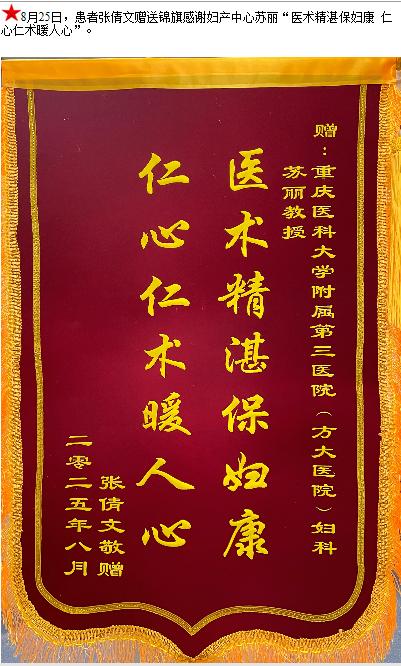 ★8月25日，患者张倩文赠送锦旗感谢妇产中心苏丽“医术精湛保妇康 仁
心仁术暖人心”。
赠：重庆医科大学附属第三医院（方大医院）妇科
苏丽教授
医术精湛保妇康
仁心仁术暖人心
张倩文敬赠
二零二五年八月